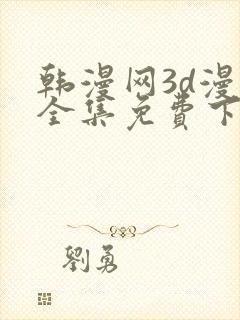 韩漫网3d漫
全集免費下
劉勇